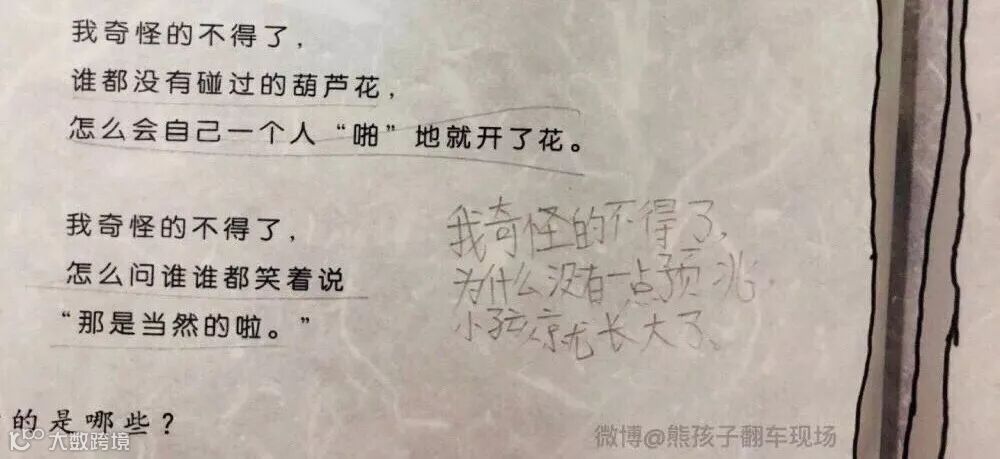 我奇怪的不得了，
谁都没有碰过的葫芦花，
怎么会自己一个人“啪”地就开了花。
我奇怪的不得了，
怎么问谁谁都笑着说
“那是当然的啦。”
我奇怪的不得了，
为什么没有一点预兆，
小孩就长大了。
的是哪些？
大数跨境
微博@熊孩子翻车现场